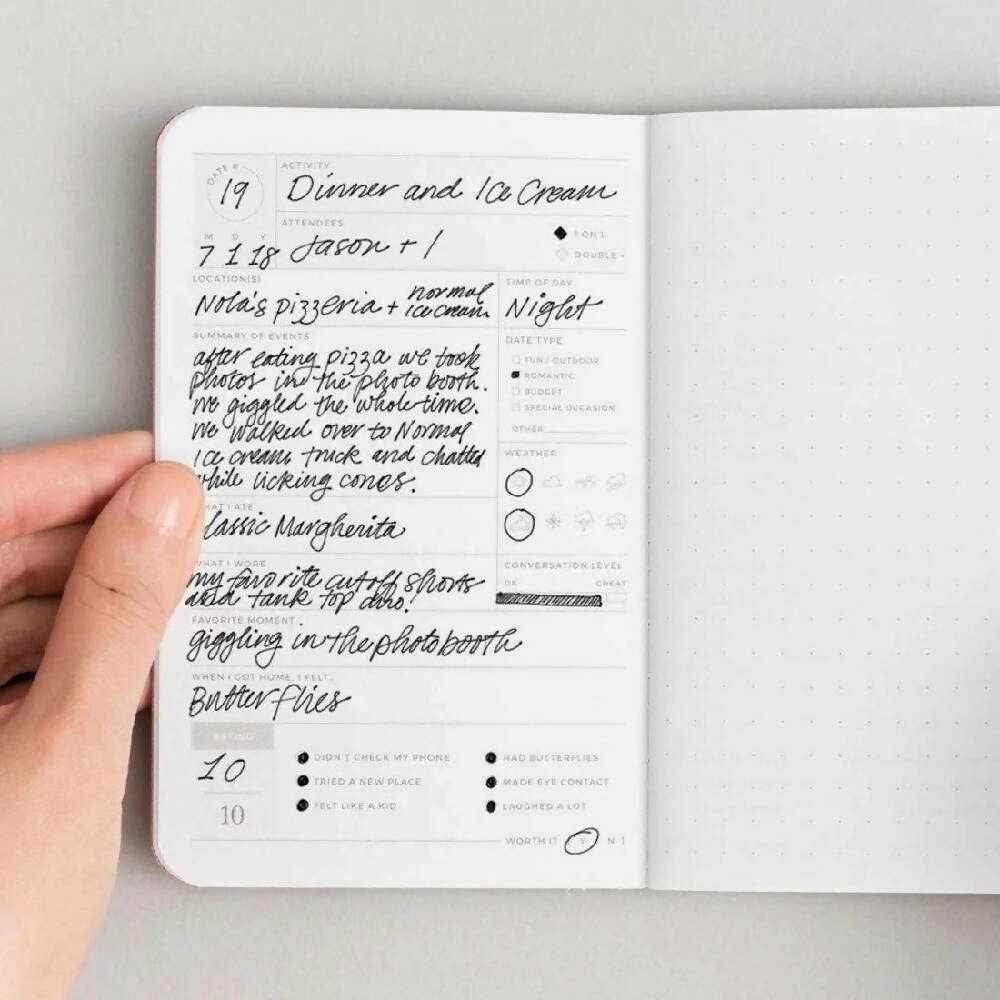 DATE #
19
ACTIVITY
Dinner and Ice Cream
M D Y
7 1 18
ATTENDEES
Jason + I
1 ON 1
DOUBLE +
LOCATION(S)
Nola's pizzeria + normal
ice cream
TIME OF DAY
Night
SUMMARY OF EVENTS
after eating pizza we took
photos in the photo booth.
We giggled the whole time.
We walked over to Normal
Ice cream truck and chatted
while licking cones.
DATE TYPE
FUN / OUTDOOR
ROMANTIC
BUDGET
SPECIAL OCCASION
OTHER
WEATHER
WHAT I ATE
Classic Margherita
WHAT I WORE
my favorite cutoff shorts
and tank top duo.
CONVERSATION LEVEL
OK GREAT
FAVORITE MOMENT
giggling in the photobooth
WHEN I GOT HOME, I FELT...
Butterflies
RATING
10
10
DIDN'T CHECK MY PHONE
TRIED A NEW PLACE
FELT LIKE A KID
HAD BUTTERFLIES
MADE EYE CONTACT
LAUGHED A LOT
WORTH IT [ Y N ]